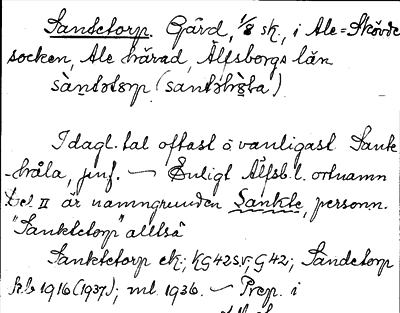 Sanktetorp. Gård, 1/8 sk, i Ale=Skövde
socken, Ale härad, Älfsborgs län
sàntətɔrp (santəhɔ̀ta)
I dagl. tal oftast o vanligast Sank
-håla, jmf. — Enligt Älfsb. l. ortnamn
del II är namngrunden Sankte, personn.
"Sanktetorp" alltså
Sanktetorp ek; KG42SV; G42; Sandetorp
kb 1916 (1937); ml. 1936. — Prep. i